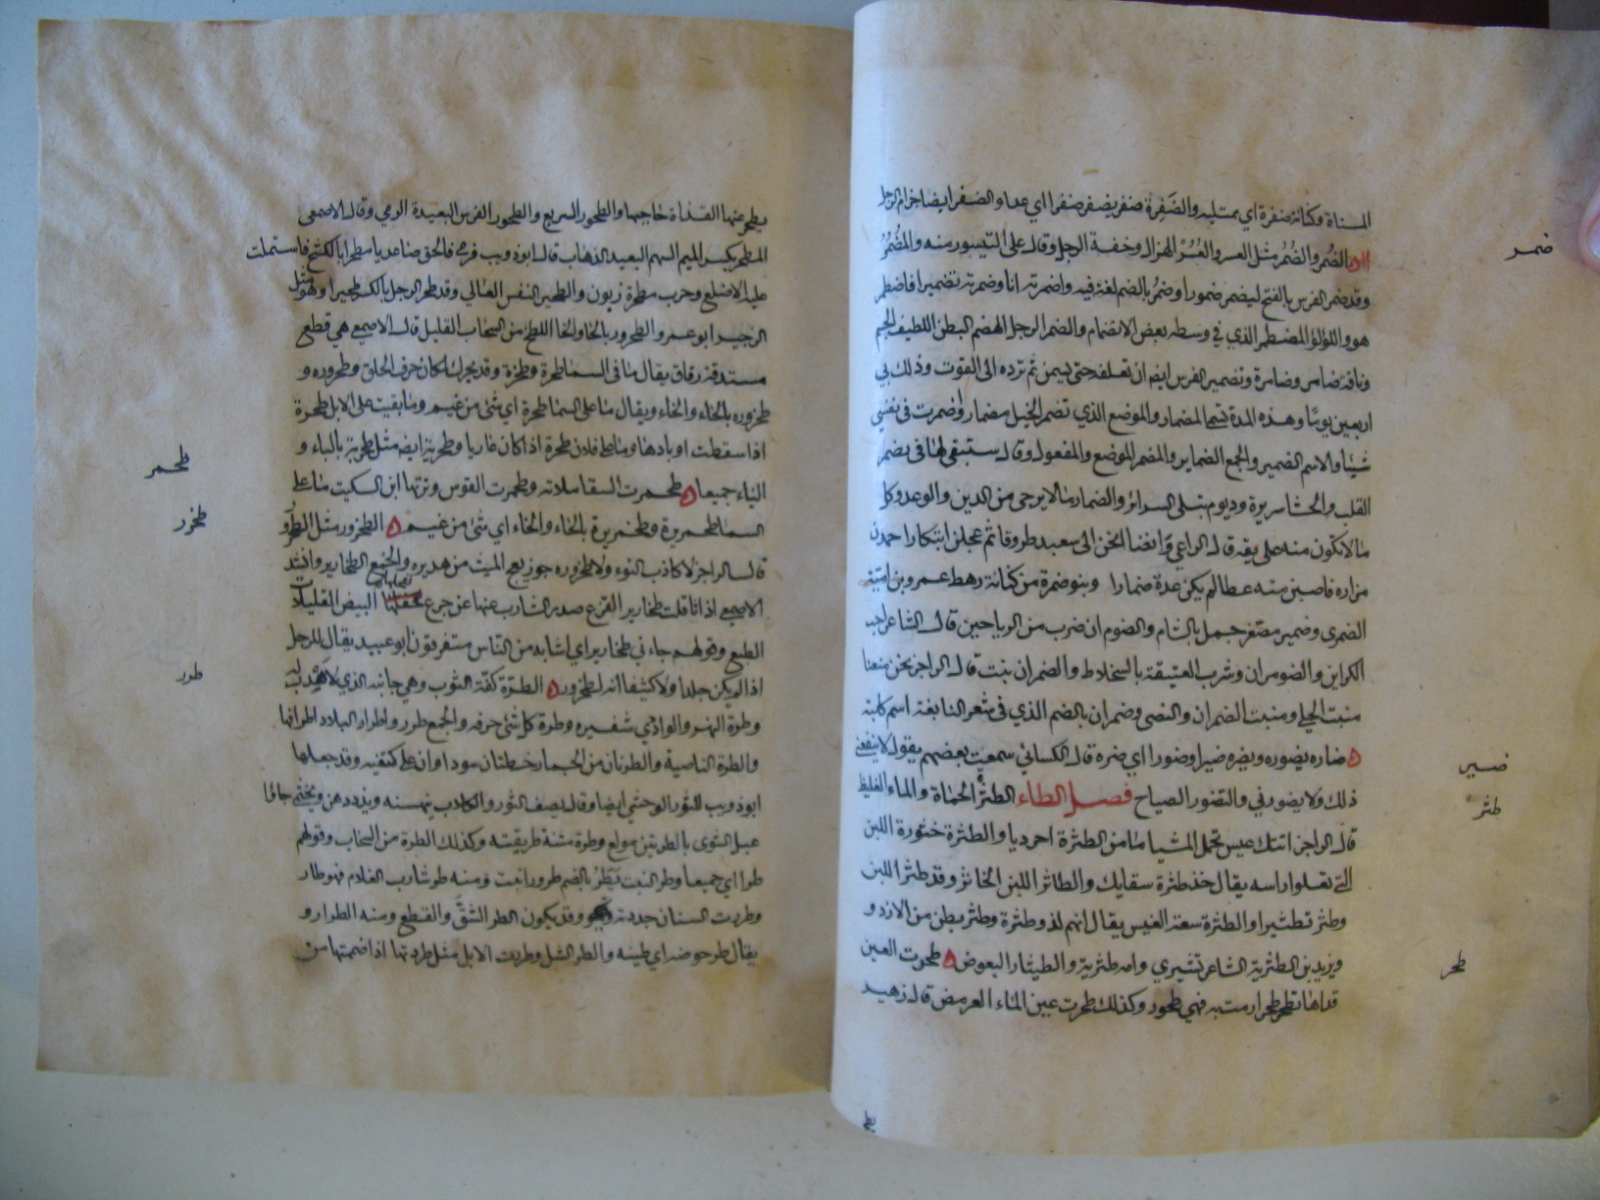 المسناة وكنانة ضفرة اي ممتليه والضفرة ضفر يضفر ضفرا اي عدا والضفر ايضا حزام الرحل
الضمر والضمر مثل العسر والعسر الهزال وخفة الرجل وقال على التيسور منه والضمر
ضمر
وقد ضمر الفرس بالفتح يضمر ضمورا وضمر بالضم لغة فيه واضمرته انا وضمرته تضميرا فاضطمر
هو واللؤلؤ المضطمر الذي في وسطه بعض الانضمام والضمر الرجل الهضم البطن اللطيف الجسم
وناقة ضامر وضامرة وتضمير الفرس ايضا ان تعلفه حتى يسمن ثم ترده الى القوت وذلك في
اربعين يوما وهذه المدة تسمى المضمار والموضع الذي تضمر الخيل مضمار واضمرت في نفسي
شيئا والاسم الضمير والجمع الضماير والمضمر الموضع والمفعول وقال ستبقى لها في مضمر
القلب والحشا سريرة ود يوم تبلى السرائر والضمار ما لا يرجى من الدين والوعد وكل
ما لا تكون منه على ثقة قال الراعي وانضاء انخن الى سعيد طروقا ثم عجلن ابتكارا حمدن
مزاره فاصبن منه عطاء لم يكن عدة ضمارا وبنو ضمرة من كنانة رهط عمرو بن امية
الضمرى وضمير مصغر جبل بالشام والضومران ضرب من الرياحين قال الشاعر احب
الكراين والضومران وشرب العتيقة بالسنجلاط والضمران نبت قال الراجز نحن منعنا
منبت الحلي ومنبت الضمران والنصى وضمران بالضم الذي في شعر النابغة اسم كلبة
ضاره يضوره ويضيره ضيرا وضورا اي ضره قال الكسائي سمعت بعضهم يقول لا ينفعني
ضير
ذلك ولا يضورني والتضور الصياح فصل الطاء الطثرة الحماة والماء الغليظ
طثر
قال الراجز اتتك عيس تحمل المشيا ماء من الطثرة احوذيا والطثرة خثورة اللبن
التي تعلو راسه يقال خذ طثرة سقايك والطاثر اللبن الخاثر وقد طثر اللبن
وطثر تطثيرا والطثرة سعة العيش يقال انهم لذو طثرة وطثر بطن من الازد و
ويزيد بن الطثرية الشاعر قشيري وامه طثرية والطيثار البعوض طحرت العين
طحر
قذاها تطحر طحرا رمت به فهي طحور وكذلك طحرت عين الماء العرمض قال زهير
يطحر عنها القذاة حاجبها والطحور السريع والطحور القوس البعيدة الرمي وقال الاصمعى
المطحر بكسر الميم السهم البعيد الذهاب قال ابو ذويب فرمى فالحق صاعديا مطحرا بالكشح فاستملت
عليه الاضلع وحرب مطحرة زبون والطحير النفس العالي وقد طحر الرجل بالكسر طحيرا وهو مثل
الزحير ابو عمرو الطحرور بالحاء والخاء اللطخ من السحاب القليل قال الاصمعي هي قطع
مستدقة رقاق يقال ما في السماء طحرة وطخرة وقد يحرك لمكان حرف الحلق وطحروره و
طخروره بالحاء والخاء ويقال ما على السماء طحرة اي شئ من غيم وما بقيت على الابل طحرة
اذا سقطت اوبارها وما على فلان طحرة اذا كان عاريا وطحرية ايضا مثل طحربة بالباء و
الياء جميعا طحمرت السقا ملاته وطحمرت القوس وترتها ابن السكيت ما على
طحمر
السماء طحمريرة وطخمريرة بالحاء والخاء اي شئ من غيم الطخرور مثل الطحرور
طخرر
قال الراجز لا كاذب النوء ولا طخروره جون يعج الميث من هديره والجمع الطخارير وانشد
الاصمعي اذا ما قلت طخارير القزع صدر الشارب منها عن جرع البيض القليلات
الطبع وقولهم جاءني طخارير اي اشابة من الناس متفرقون ابو عبيد يقال للرجل
اذا لم يكن جلدا ولا كثيفا انه لطخرور الطرة كفة الثوب وهي جانبه الذي لا هدب له
طرر
وطرة النهر والوادي شفيره وطرة كل شئ حرفه والجمع طرر واطرار البلاد اطرافها
والطرة الناصية والطرتان من الحمار خطتان سوداوان على كتفيه وقد جعلها
ابو ذويب للثور الوحشي ايضا وقال يصف الثور والكلاب ينهسنه ويذودهن ويحتمي
عبل الشوى بالطرتين مولع وطرة متنه طريقته وكذلك الطرة من السحاب وقولهم
طرا اي جميعا وطر النبت يطر بالضم طرورا نبت ومنه طر شارب الغلام فهو طار
وطررت السنان حددته وقد يكون الطر الشق والقطع ومنه الطرار و
يقال طر حوضه اي طينه والطر الشل وطررت الابل مثل طردتها اذا ضممتها من